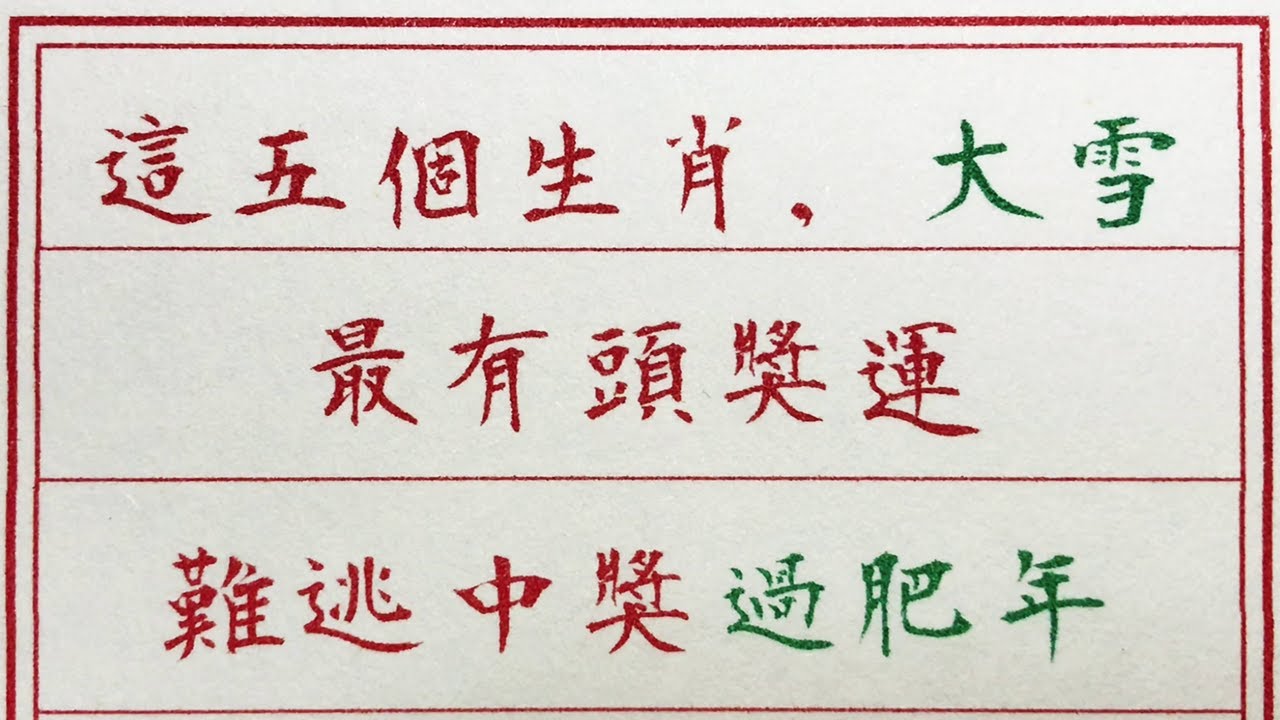 這五個生肖，大雪
最有頭獎運
難逃中獎過肥年